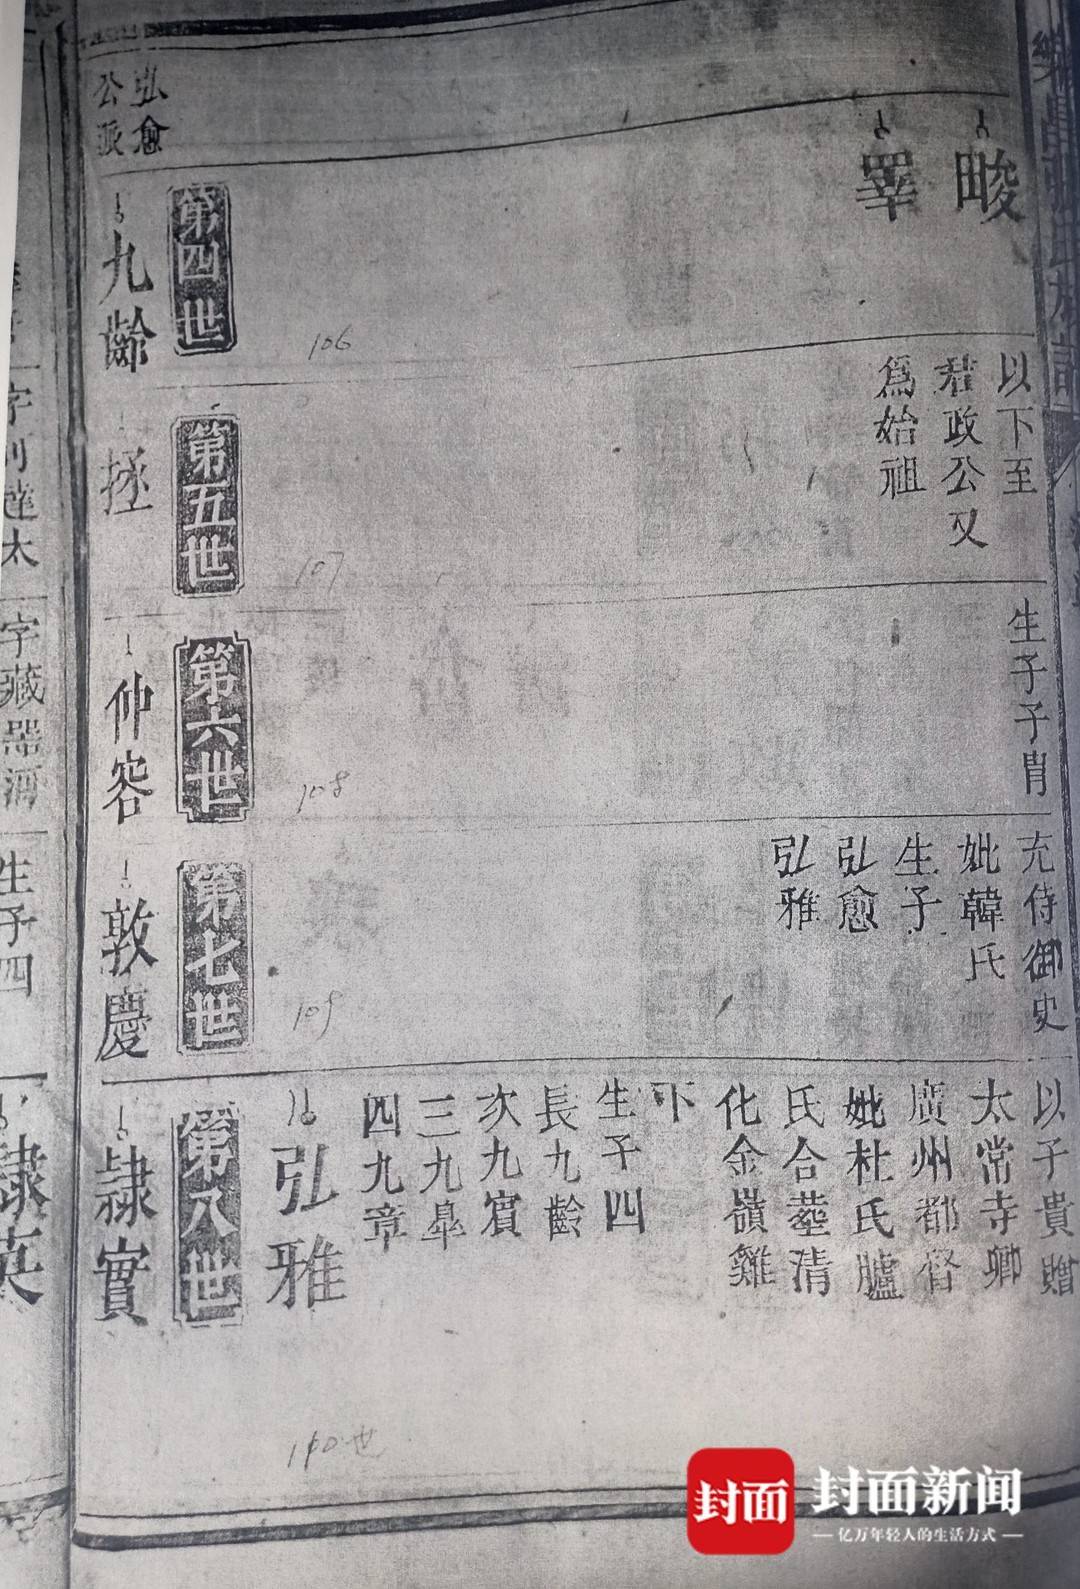 畯
睪
以下至
君政公又
爲始祖
生子子胄
充侍御史
妣韓氏
生子
弘愈
弘雅
以子貴贈
太常寺卿
廣州都督
妣杜氏臚
氏合塟清
化金嶺雞
下
生子四
長九齡
次九賓
三九皐
四九章
弘雅
106
107
108
109
110世
弘愈
公派
第四世
九齡
第五世
拯
第六世
仲容
第七世
敦慶
第八世
隷實
達太
字藏器河
生子四
隷英
封面
封面新闻
亿万年轻人的生活方式